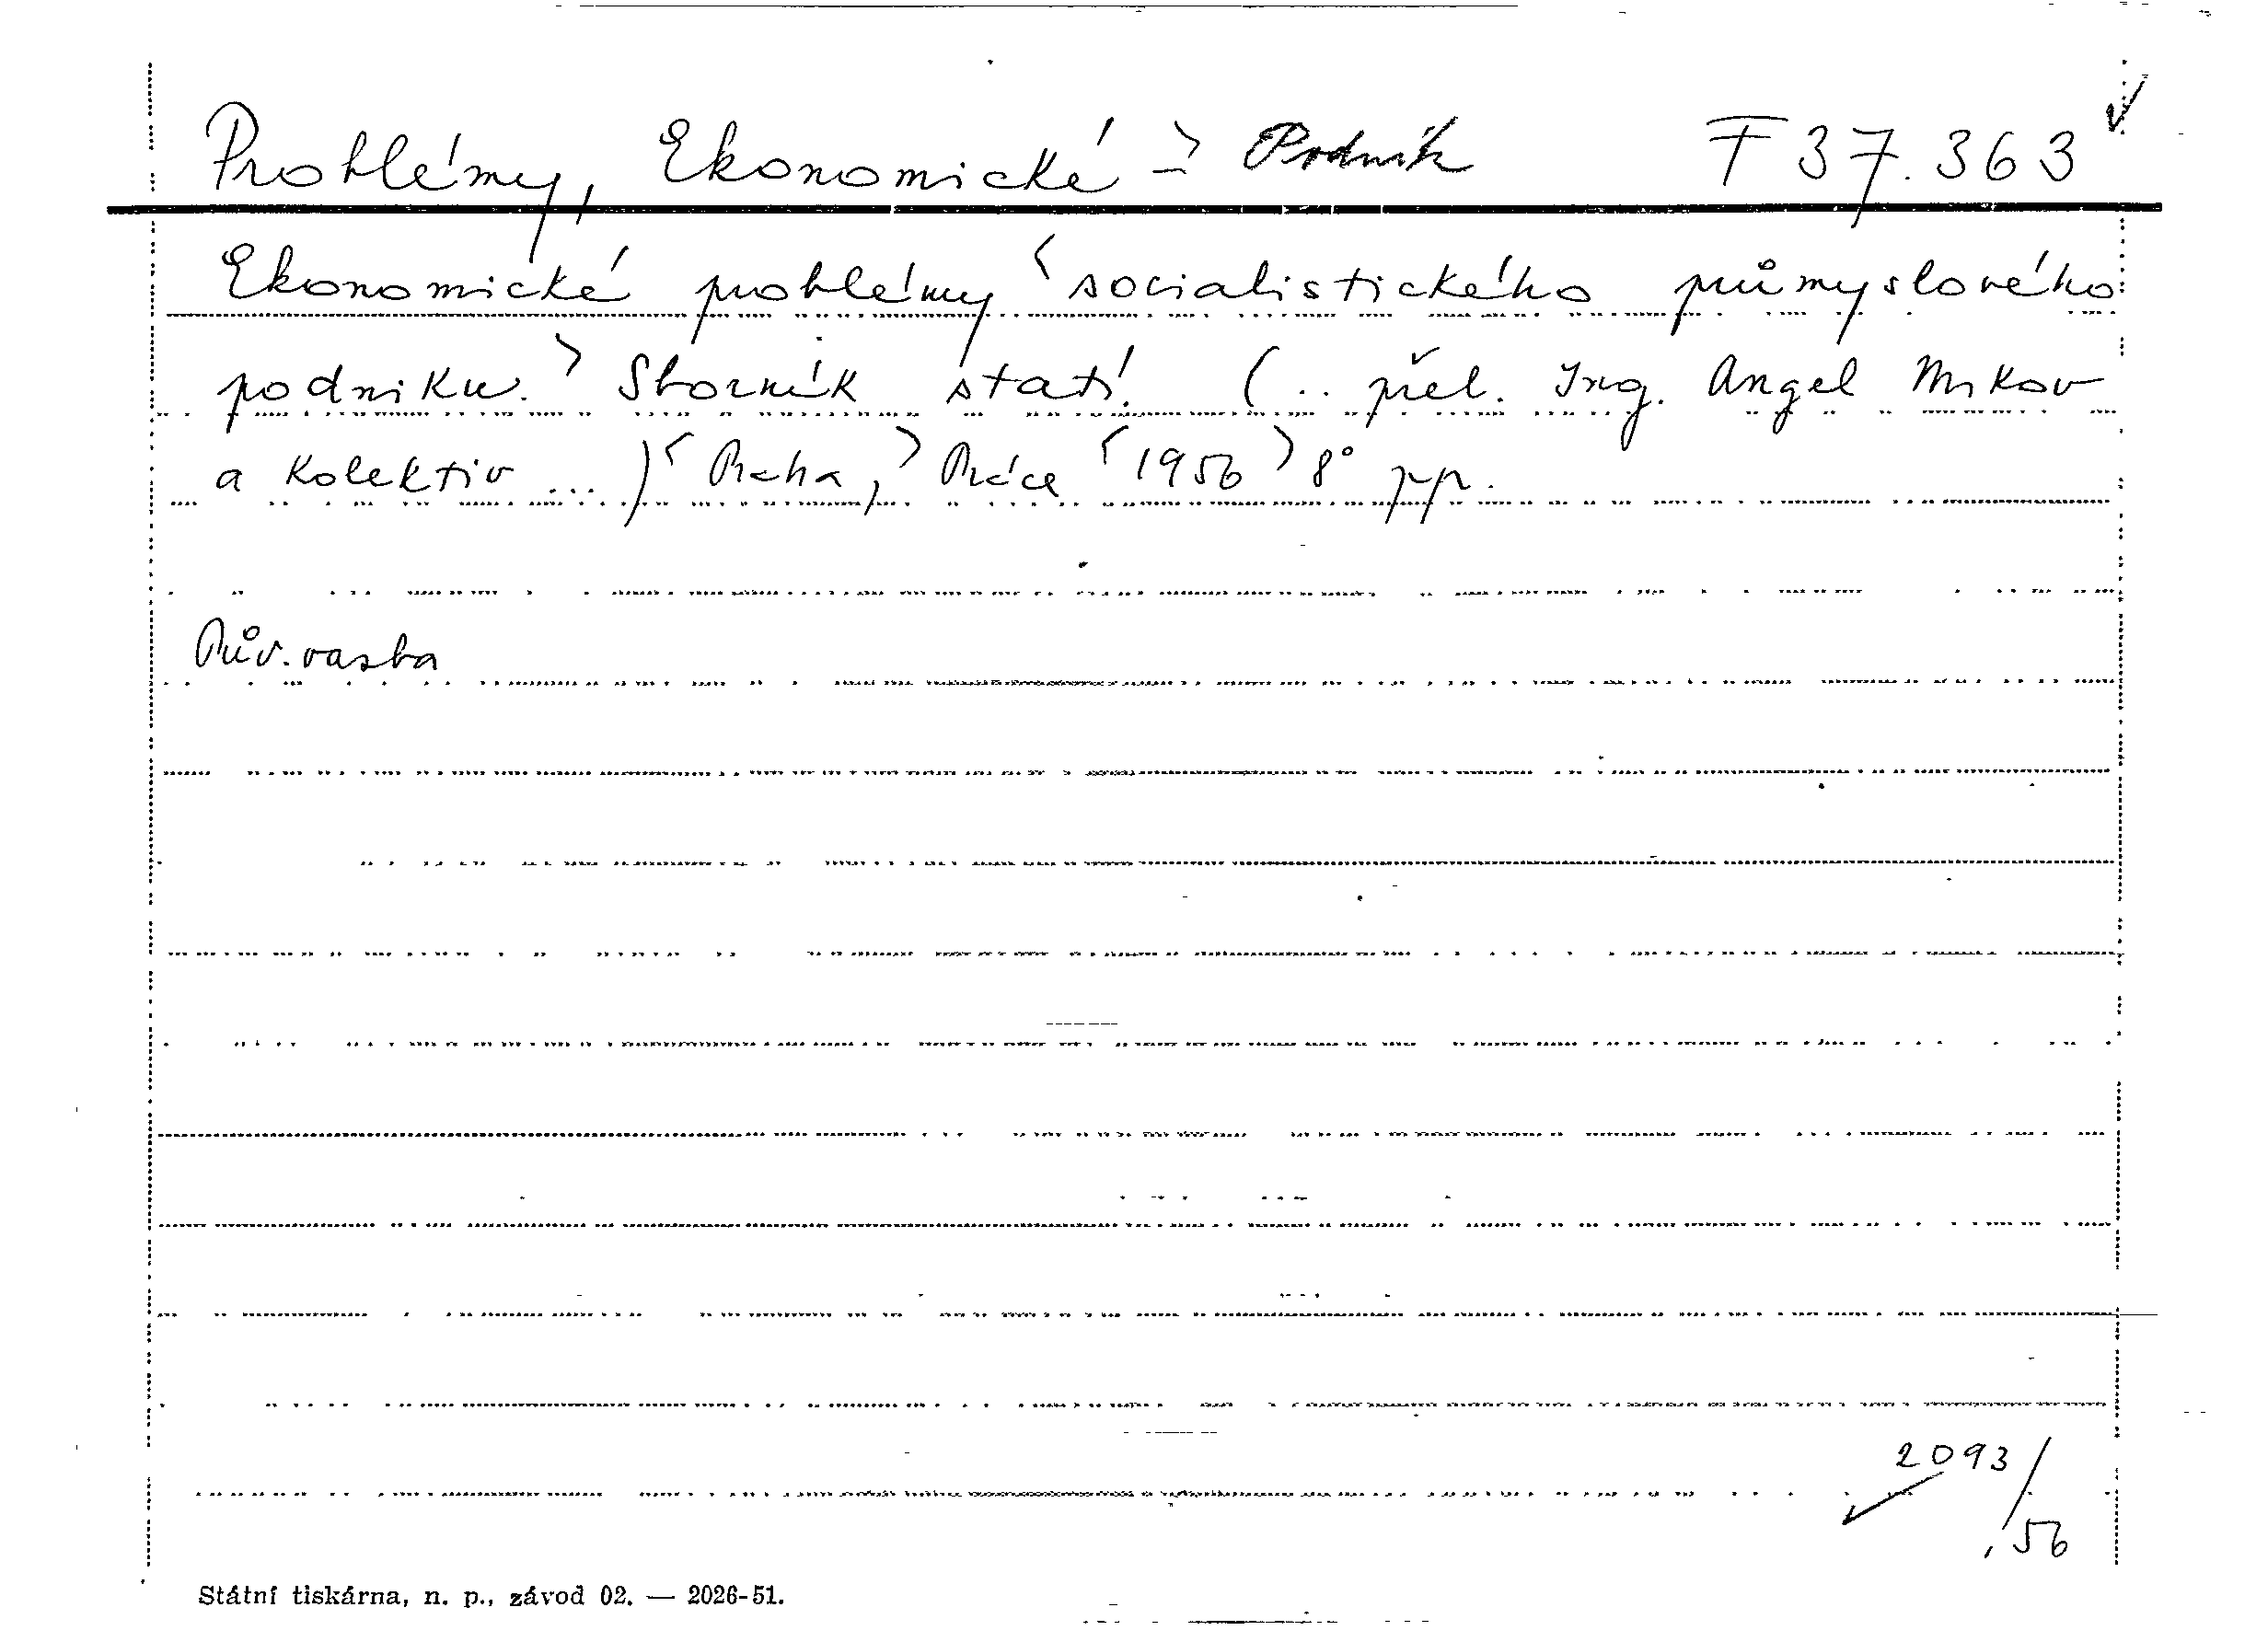 Problémy, Ekonomické - > Podnik F 37.363
Ekonomické problémy < socialistického průmyslového
podniku. > Sborník statí. (.. přel. Ing. Angel Mikov
a kolektiv ...) < Praha, > Práce < 1956 > 8° pp.
Pův. vazba
2093/
56
Státní tiskárna, n. p., závod 02. — 2026-51.